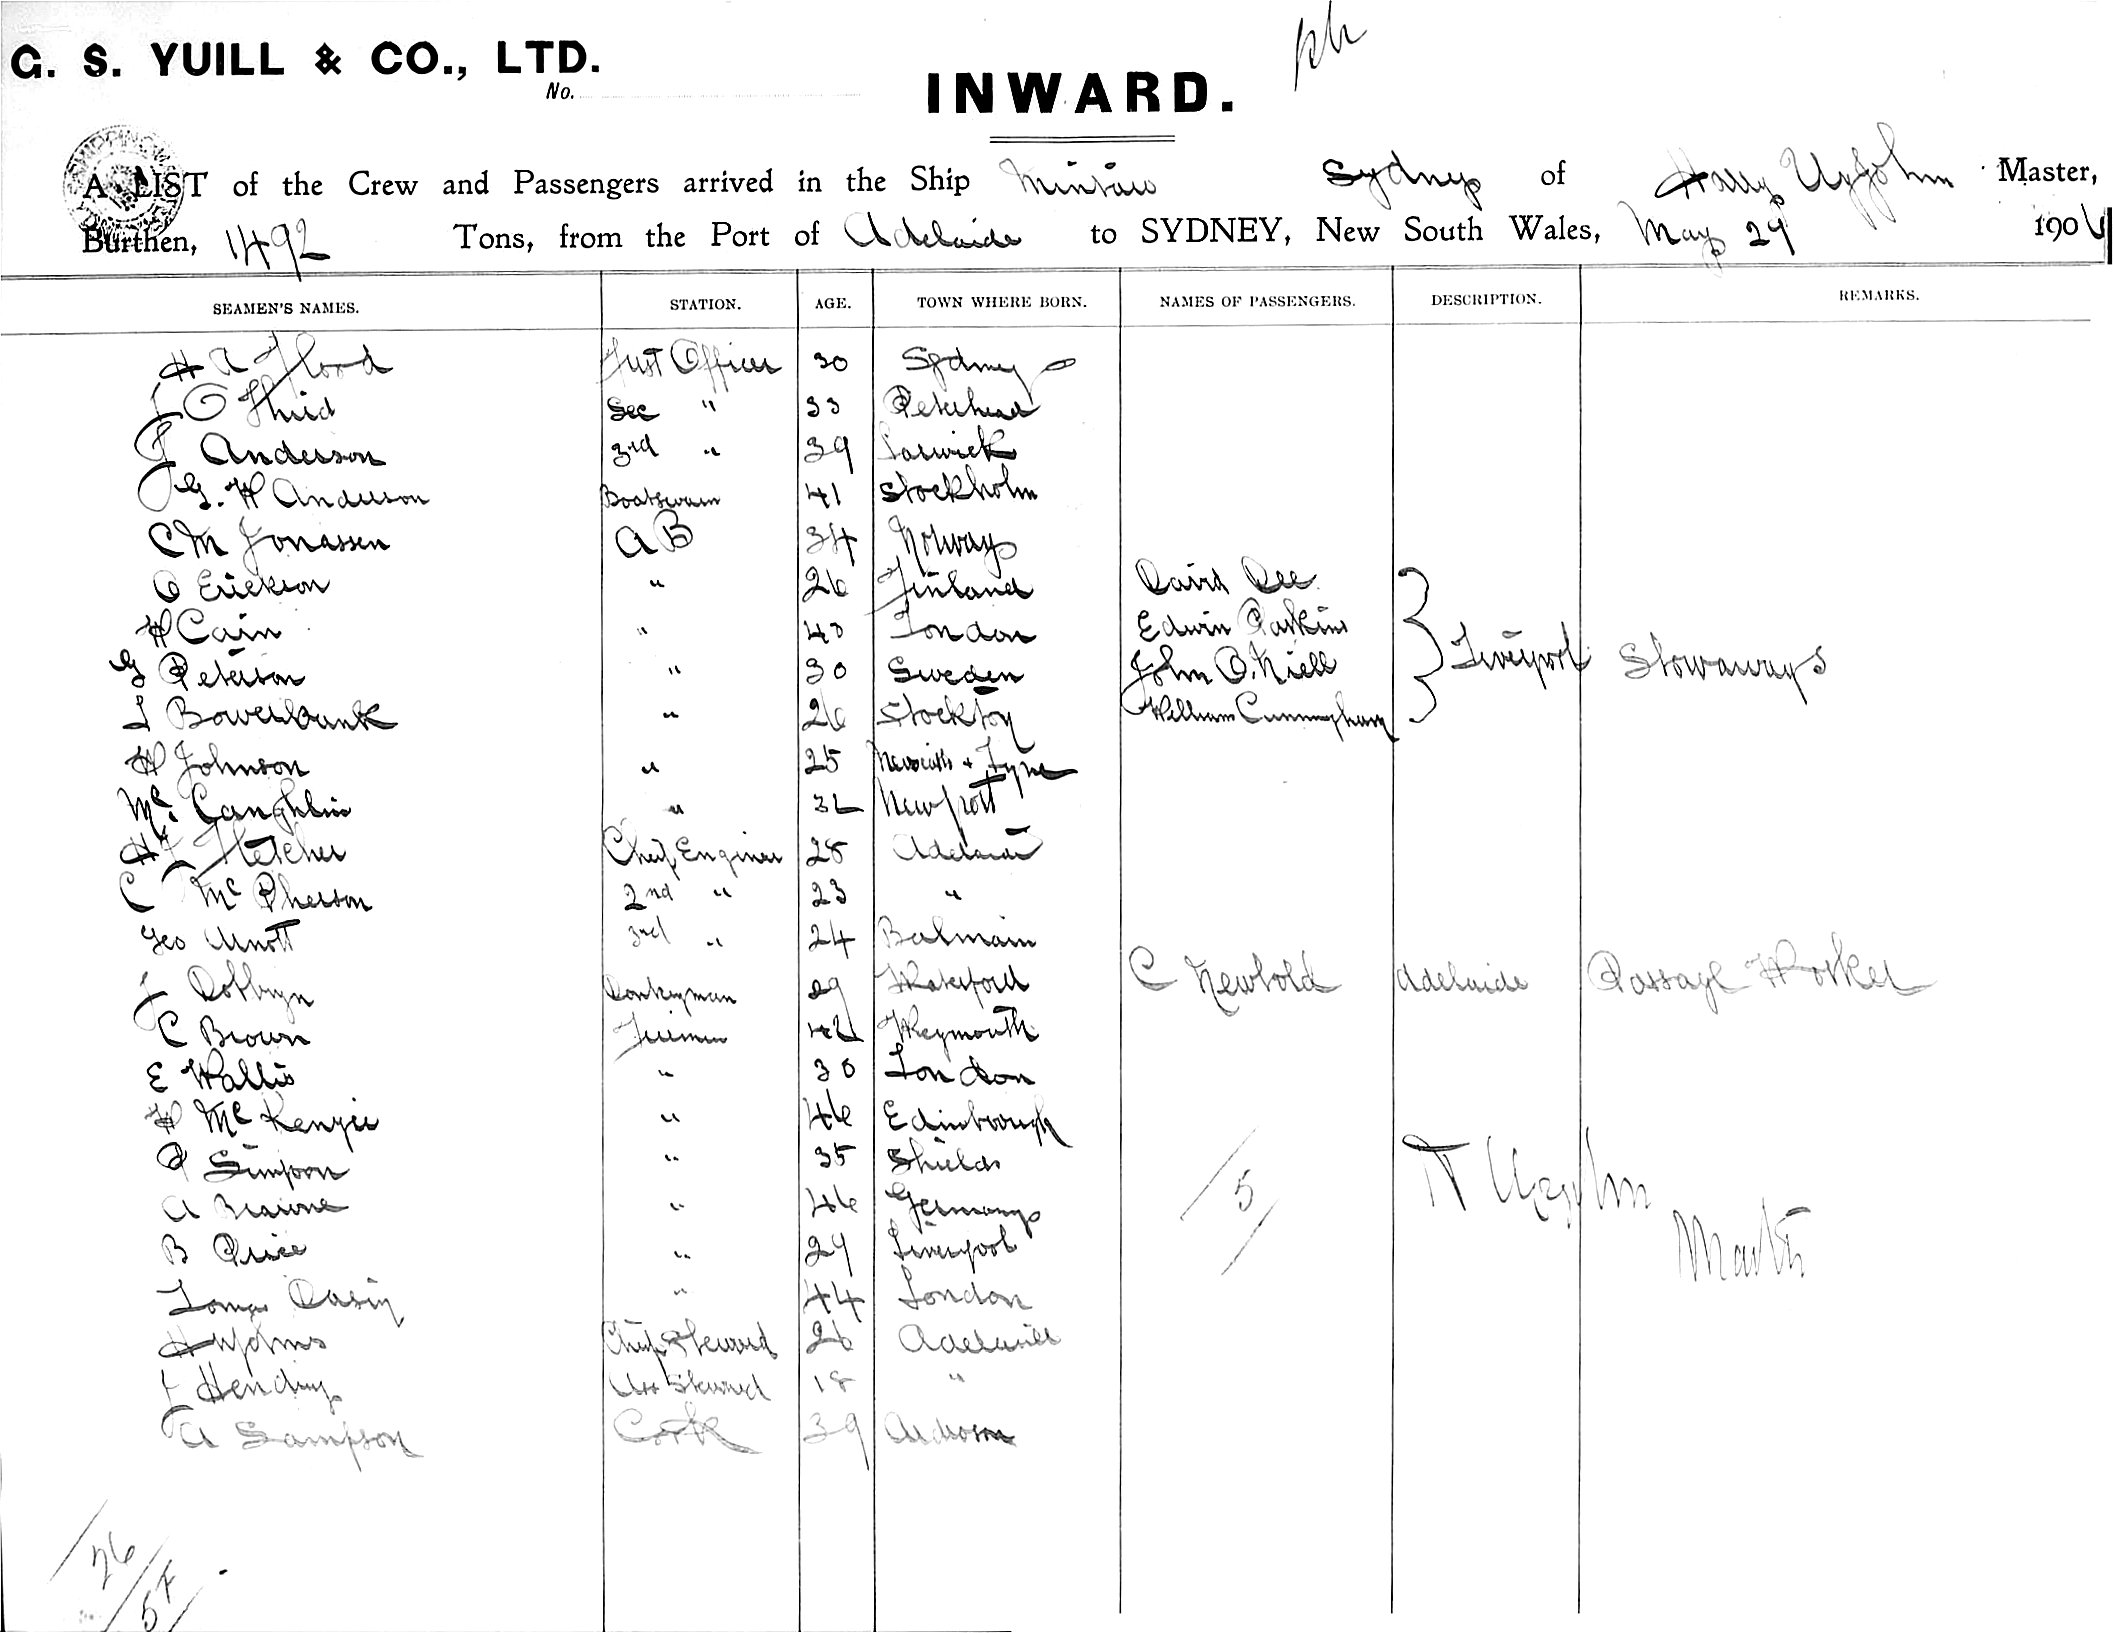 G. S. YUILL & CO., LTD.
No.
INWARD.
A LIST of the Crew and Passengers arrived in the Ship Mintaro Sydney of Harry Upjohn Master,
Burthen, 1492 Tons, from the Port of Adelaide to SYDNEY, New South Wales, May 29 190
SEAMEN'S NAMES. STATION. AGE. TOWN WHERE BORN. NAMES OF PASSENGERS. DESCRIPTION. REMARKS.
H A Flood First Officer 30 Sydney
J O Sec " 33 Peterhead
Anderson 3rd " 39
G. H Anderson Boatswain 41 Stockholm
C M Jonassen A B 34 Norway
O Erickson " 26 Finland David Dee
H Cain " 40 London Edwin Parkins
G Peterson " 30 Sweden John O. Niell Liverpool Stowaways
L Bowerbank " 26 Stockton William Cunningham
H Johnson " 25 Tyne
Mc. Caughlin " 32 Newport
H L Fletcher Chief Engineer 28 Adelaide
C McPherson 2nd " 23 "
Geo Arnott 3rd " 24 Balmain
J Dobbyn Donkeyman 29 Waterford C Newbold Adelaide Passage Worker
C Brown Fireman 42 Weymouth
E Wallis " 30 London
H McKenzie " 46 Edinboough
P Simpson " 35 Shields
A Braune " 46 Germany
B Price " 29 Liverpool
5
H Upjohn
Master
" 44 London
H Chief Steward 26 Adelaide
J Hendry Ass Steward 18 "
A Sampson Cook 39
26
5F